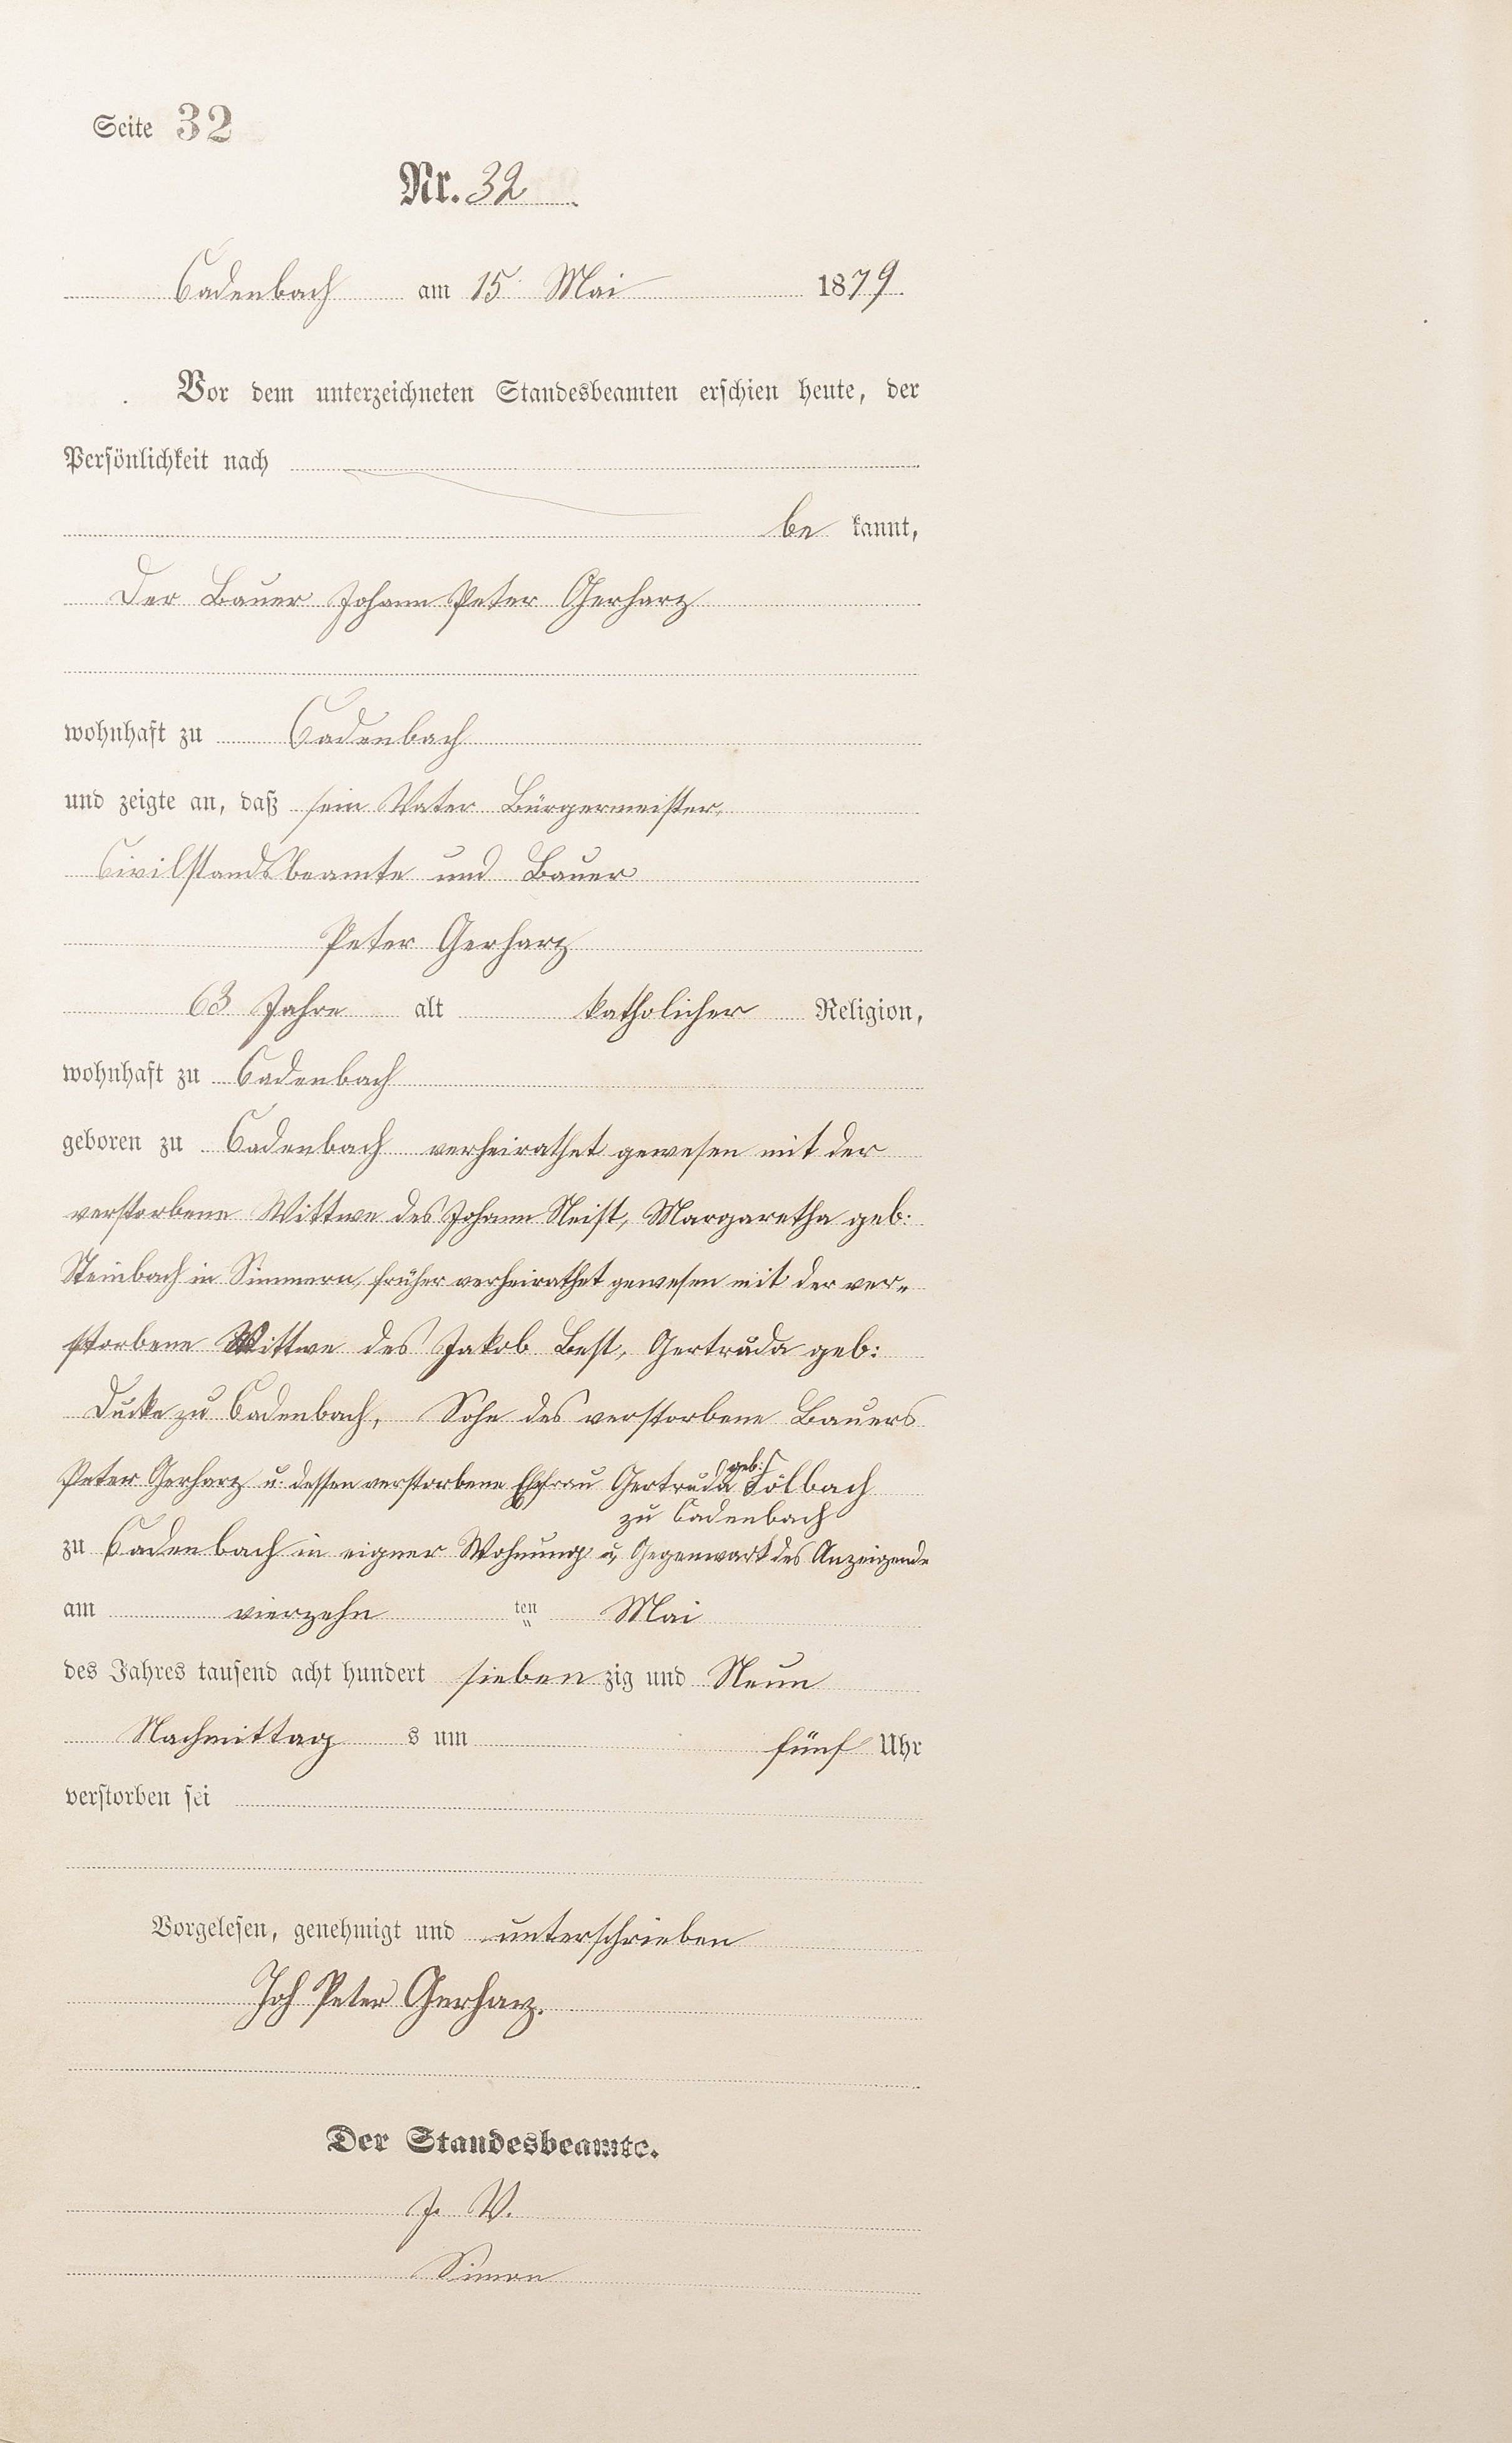 Seite 32
Nr. 32
Cadenbach am 15. Mai 1879.
Vor dem unterzeichneten Standesbeamten erschien heute, der
Persönlichkeit nach
be kannt,
Der Bauer Johann Peter Gerharz
wohnhaft zu Cadenbach
und zeigte an, daß sein Vater Bürgermeister,
Civilstandsbeamte und Bauer
Peter Gerharz
63 Jahre alt katholicher Religion,
wohnhaft zu Cadenbach
geboren zu Cadenbach verheirathet gewesen mit der
verstorbene Wittwe des Johann Neist, Margaretha geb:
Steinbach in Simmern, früher verheirathet gewesen mit der ver-
storbene Wittwe des Jakob Best, Gertruda geb:
Ducke zu Cadenbach, Sohn des verstorbene Bauers
Peter Gerharz u. dessen verstorbene Ehfrau Gertruda geb: Fölbach
zu Cadenbach
zu Cadenbach in eigner Wohnung u. Gegenwart des Anzeigende
am vierzehn ten Mai
des Jahres tausend acht hundert sieben zig und Neun
Nachmittag s um fünf Uhr
verstorben sei
Vorgelesen, genehmigt und unterschrieben
Joh Peter Gerharz.
Der Standesbeamte.
J. V.
Simon